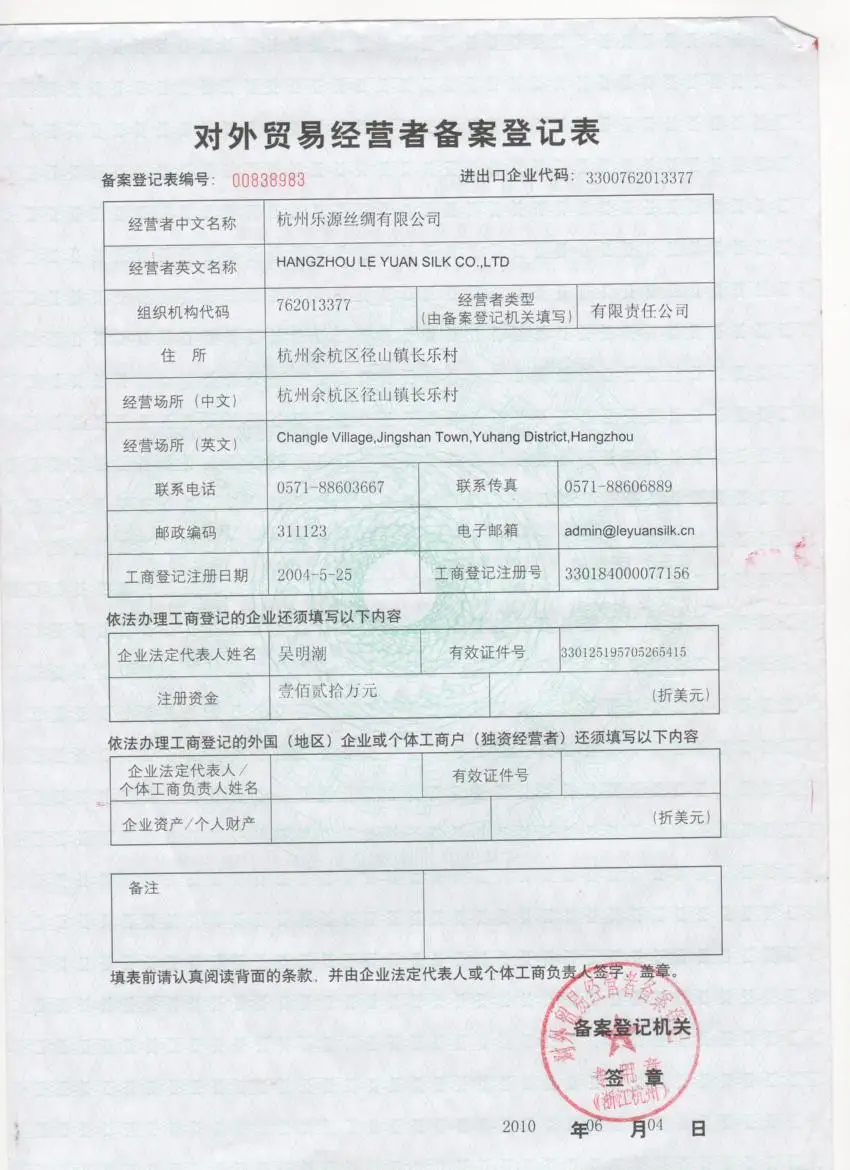 对外贸易经营者备案登记表
备案登记表编号： 00838983 进出口企业代码： 3300762013377
经营者中文名称 杭州乐源丝绸有限公司
经营者英文名称 HANGZHOU LE YUAN SILK CO.,LTD
组织机构代码 762013377 经营者类型 (由备案登记机关填写) 有限责任公司
住 所 杭州余杭区径山镇长乐村
经营场所（中文） 杭州余杭区径山镇长乐村
经营场所（英文） Changle Village,Jingshan Town,Yuhang District,Hangzhou
联系电话 0571-88603667 联系传真 0571-88606889
邮政编码 311123 电子邮箱 admin@leyuansilk.cn
工商登记注册日期 2004-5-25 工商登记注册号 330184000077156
依法办理工商登记的企业还须填写以下内容
企业法定代表人姓名 吴明潮 有效证件号 330125195705265415
注册资金 壹佰贰拾万元 (折美元)
依法办理工商登记的外国（地区）企业或个体工商户（独资经营者）还须填写以下内容
企业法定代表人/
个体工商负责人姓名 有效证件号
企业资产/个人财产 (折美元)
备注
填表前请认真阅读背面的条款，并由企业法定代表人或个体工商负责人签字、盖章。
对外贸易经营者备案登记
备案登记机关
专用章
签 章
(浙江杭州)
2010 年 06 月 04 日